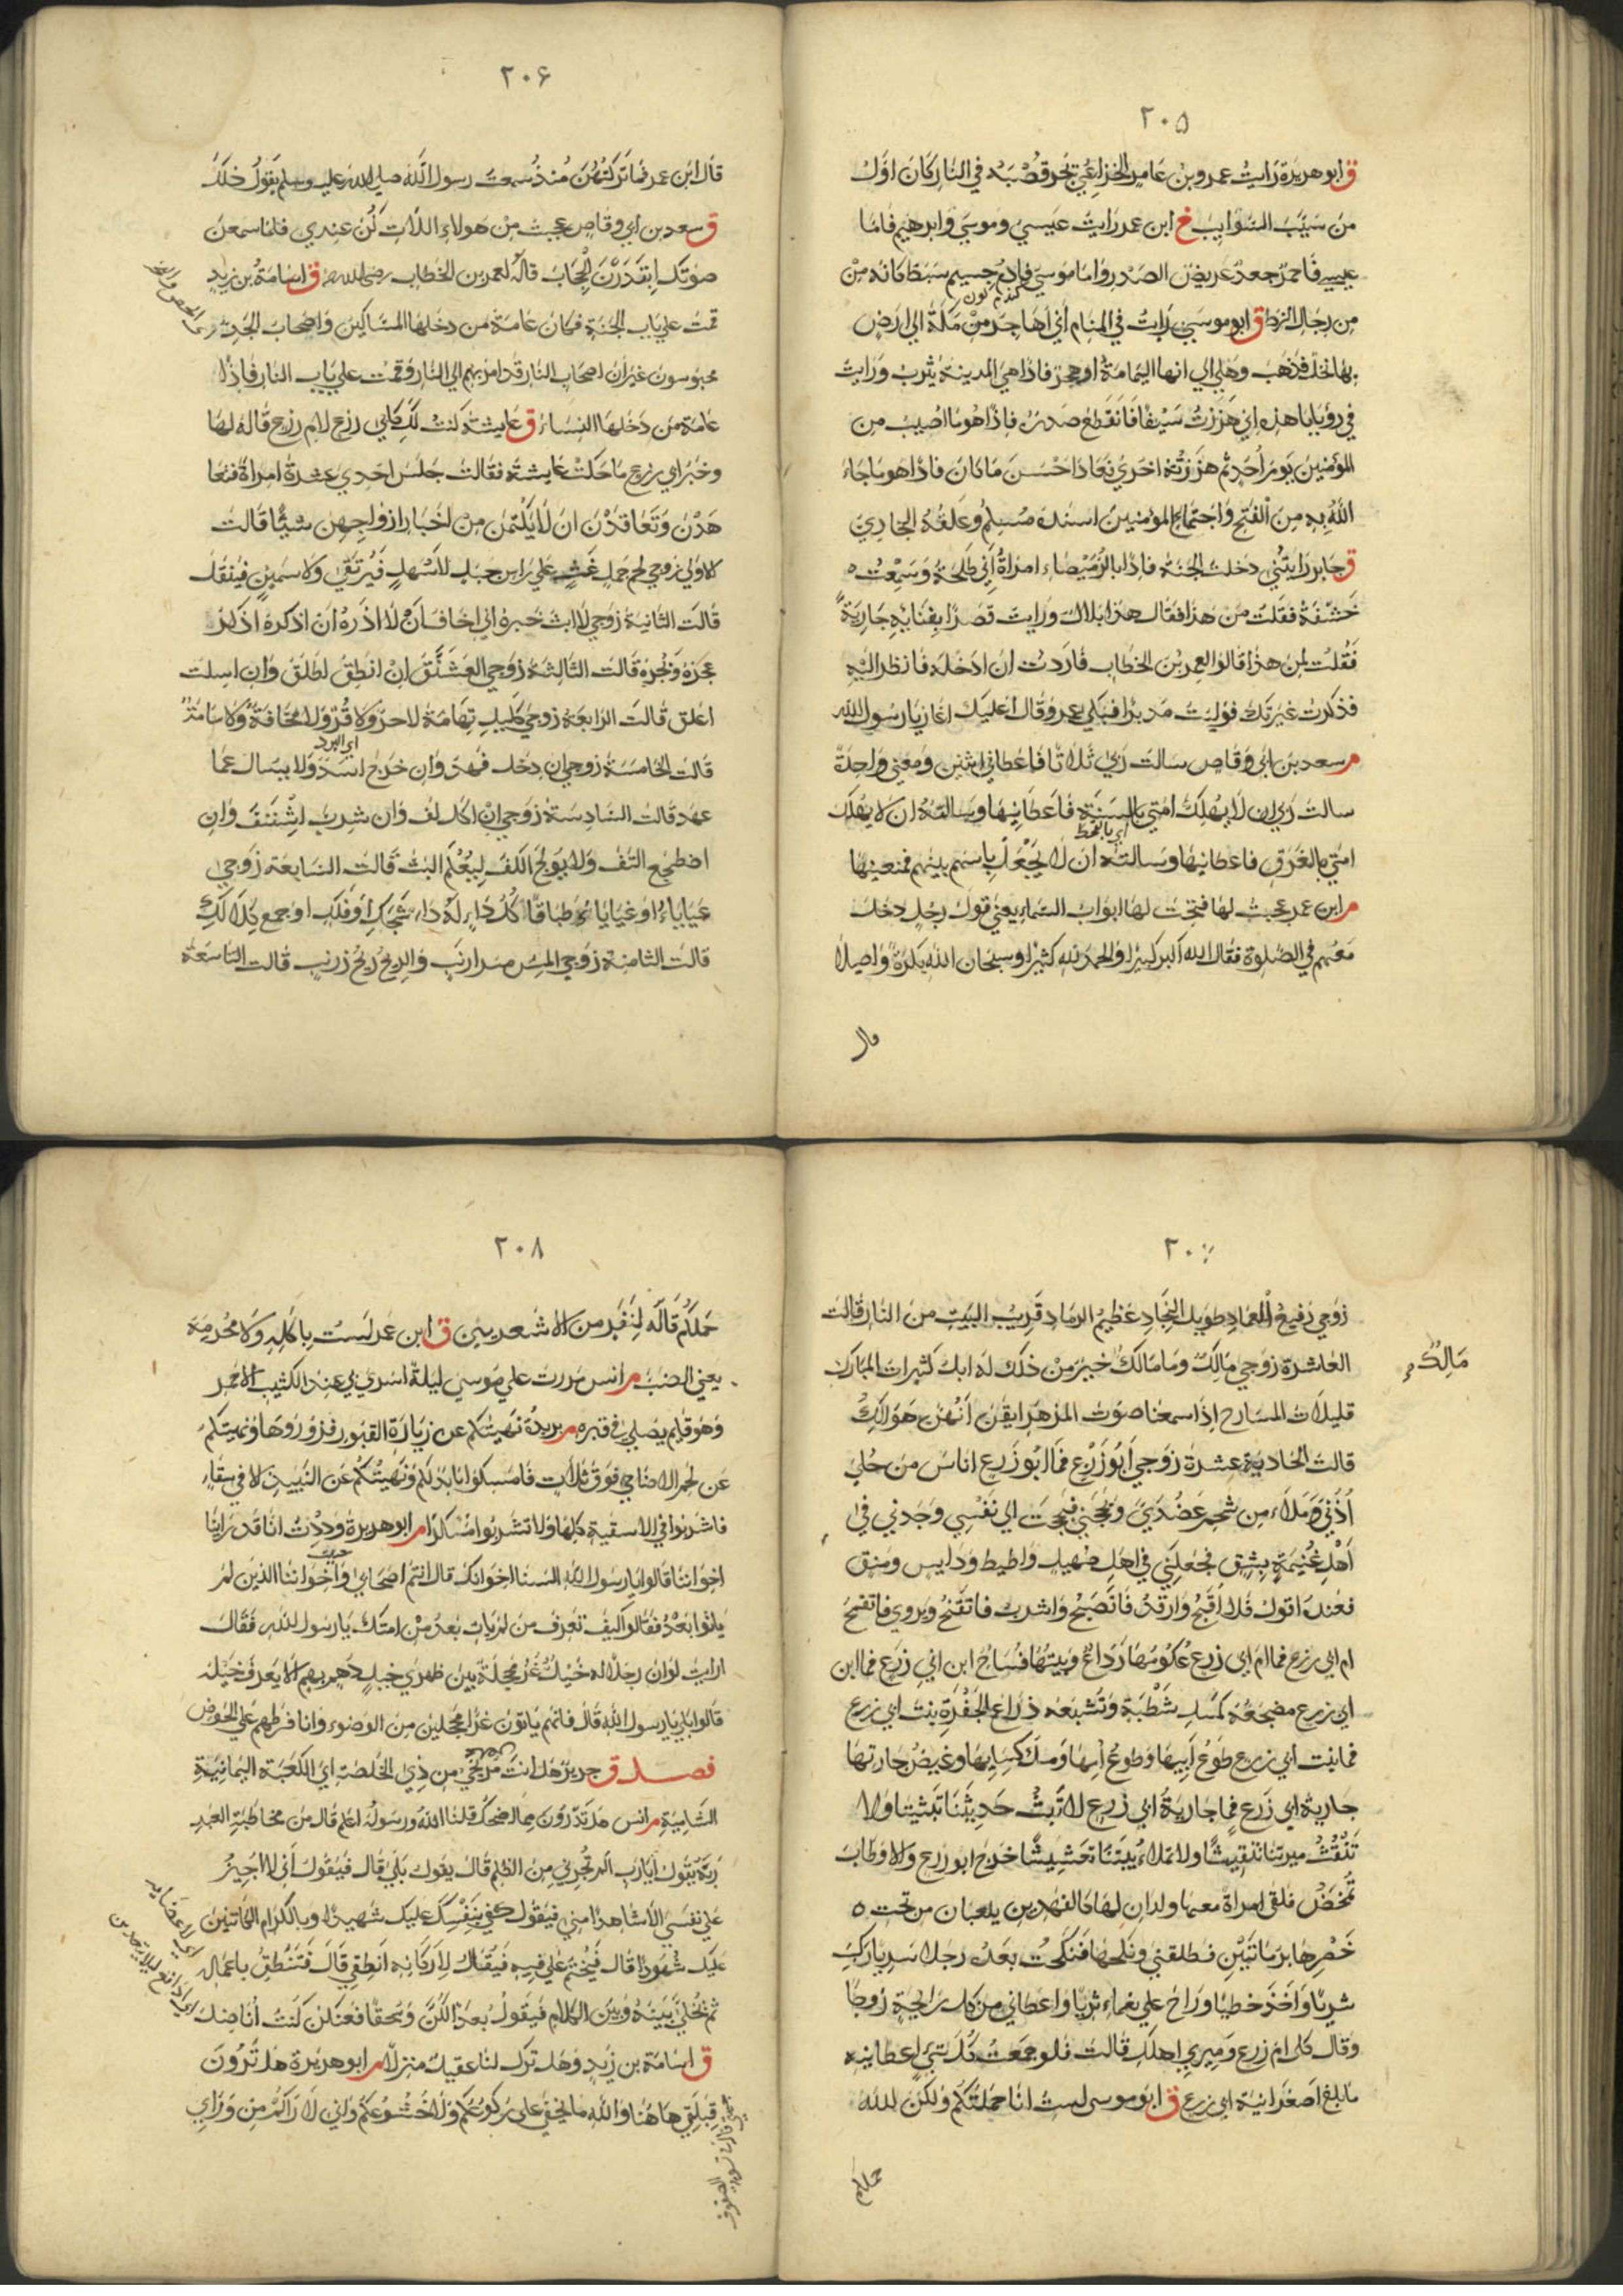 ٢٠٥
ق ابو هريرة رَايتُ عمرو بن عامر الخزاعي يجر قُصْبَه في النار كان اوّل
من سَيَّبَ السَّوايِبَ خ ابن عمر رايت عيسي وموسي وابرهيم فامّا
عيسي فاحمرّ جعدٌ عريض الصَدر واما موسي فادم جسيم سَبط كانه من
كندم كون
من رجال الزط ق ابو موسي رايت في المنام أني اهاجر من مكة الي ارض
بها نخل فذهب وهلي الي انها اليمامة او هجر فاذا هي المدينة يثرب ورايت
في رؤياي هذه اني هززت سيفا فانقطع صدره فاذا هو ما اصيب من
المؤمنين يوم احد ثم هززته اخري فعاد احسن ما كان فاذا هو ما جاء
الله به من الفتح واجتماع المؤمنين اسنده مسلم وعلقه البخاري
ق جابر رايتني دخلت الجنة فاذا بالرميصاء امراة ابي طلحة وسمعت ه
خشفة فقلت من هذا فقال هذا بلال ورايت قصرا بفنايه جارية
فقلت لمن هذا قالوا لعمر بن الخطاب فاردت ان ادخله فانظر اليه
فذكرت غيرتك فوليت مدبرا فبكي عمر وقال اعليك اغار يا رسول الله
م سعد بن ابي وقاص سالت ربي ثلاثا فاعطاني اثنين ومنعني واحدة
سالت ربي ان لا يهلك امتي بالسنة فاعطانيها وسالته ان لا يهلك
اي بالقحط
امتي بالغرق فاعطانيها وسالته ان لا يجعل باسهم بينهم فمنعنيها
م ابن عمر عجبت لها فتحت لها ابواب السماء يعني قول رجل دخل
معهم في الصلوة فقال الله اكبر كبيرا والحمد لله كثيرا وسبحان الله بكرة واصيلا
قال
٢٠۶
قال ابن عمر فما تركتهن منذ سمعت رسول الله صلي الله عليه وسلم يقول ذلك
ق سعد بن ابي وقاص عجبت من هولاء اللات كن عندي فلما سمعن
صوتك ابتدرن الحجاب قاله لعمر بن الخطاب رضي الله عنه ق اسامة بن زيد
قمت علي باب الجنة فكان عامة من دخلها المساكين واصحاب الجد
محبوسون غير ان اصحاب النار قد امر بهم الي النار وقمت علي باب النار فاذا
عامة من دخلها النساء ق عايشة كنت لك كابي زرع لام زرع قاله لها
وخبر ابي زرع ما حكت عايشة فقالت جلس احدي عشرة امراة فتعا
هدن وتعاقدن ان لا يكتمن من اخبار ازواجهن شيئا قالت
الاولي زوجي لحم جمل غث علي راس جبل لا سهل فيرتقي ولا سمين فينقل
قالت الثانية زوجي لا ابث خبره اني اخاف ان لا اذره ان اذكره اذكر
عجره وبجره قالت الثالثة زوجي العشنق ان انطق اطلق وان اسكت
اعلق قالت الرابعة زوجي كليل تهامة لا حر ولا قر ولا مخافة ولا سامة
اي البرد
قالت الخامسة زوجي ان دخل فهد وان خرج اسد ولا يسال عما
عهد قالت السادسة زوجي ان اكل لف وان شرب اشتف وان
اضطجع التف ولا يولج الكف ليعلم البث قالت السابعة زوجي
عياياء او غياياء طباقاء كل داء له داء شجك او فلك او جمع كلا لك
قالت الثامنة زوجي المس مس ارنب والريح ريح زرنب قالت التاسعة
زوجي رفيع العماد طويل النجاد عظيم الرماد قريب البيت من الناد قالت
العاشرة زوجي مالك وما مالك خير من ذلك له ابل كثيرات المبارك
مَالِك
قليلات المسارح اذا سمعنا صوت المزهر ايقن انهن هوالك
قالت الحادية عشرة زوجي ابو زرع فما ابو زرع اناس من حلي
اذني وملاء من شحم عضدي وبجحني فبجحت الي نفسي وجدني في
اهل غنيمة بشق فجعلني في اهل صهيل واطيط ودايس ومنق
فعنده اقول فلا اقبح وارقد فاتصبح واشرب فاتقنح ويروي فاتقمح
ام ابي زرع فما ام ابي زرع عكومها رداح وبيتها فساح ابن ابي زرع فما ابن
ابي زرع مضجعه كمسل شطبة وتشبعه ذراع الجفرة بنت ابي زرع
فما بنت ابي زرع طوع ابيها وطوع امها وملء كسايها وغيض جارتها
جارية ابي زرع فما جارية ابي زرع لا تبث حديثنا تبثيثا ولا
تنقث ميرتنا تنقيثا ولا تملاء بيتنا تعشيشا خرج ابو زرع والاوطاب
تمخض فلقي امراة معها ولدان لها كالفهدين يلعبان من تحت ه
خصرها برمانتين فطلقني ونكحها فنكحت بعده رجلا سريا ركب
شريا واخذ خطيا وراح علي نعماء ثريا واعطاني من كل رايحة زوجا
وقال كلي ام زرع وميري اهلك قالت فلو جمعت كل شي اعطانيه
ما بلغ اصغر انية ابي زرع ق ابو موسي لست انا حملتكم ولكن الله
حملكم
٢٠٨
حملكم قاله لنفر من الاشعريين ق ابن عمر لست باكله ولا محرمه
يعني الضب م انس مررت علي موسي ليلة اسري بي عند الكثيب الاحمر
وهو قايم يصلي في قبره م بريدة نهيتكم عن زيارة القبور فزوروها ونهيتكم
عن لحوم الاضاحي فوق ثلاث فامسكوا ما بدا لكم ونهيتكم عن النبيذ الا في سقاء
فاشربوا في الاسقية كلها ولا تشربوا مسكرا م ابو هريرة وددت انا قد راينا
اخواننا قالوا يا رسول الله السنا اخوانك قال انتم اصحابي واخواننا الذين لم
ياتوا بعد فقالوا كيف تعرف من لم يات بعد من امتك يا رسول الله فقال
ارايت لو ان رجلا له خيل غر محجلة بين ظهري خيل دهم بهم الا يعرف خيله
قالوا بلي يا رسول الله قال فانهم ياتون غرا محجلين من الوضوء وانا فرطهم علي الحوض
فصل ق جرير هل انت مريحي من ذي الخلصة اي الكعبة اليمانية
الشامية م انس هل تدرون مما اضحك قلنا الله ورسوله اعلم قال من مخاطبة العبد
ربه يقول يا رب الم تجرني من الظلم قال يقول بلي قال فيقول اني لا اجيز
علي نفسي الا شاهدا مني فيقول كفي بنفسك عليك شهيدا وبالكرام الكاتبين
عليك شهودا قال فيختم علي فيه فيقال لاركانه انطقي قال فتنطق باعماله
ثم يخلي بينه وبين الكلام فيقول بعدا لكن وسحقا فعنكن كنت اناضل
ق اسامة بن زيد وهل ترك لنا عقيل منزلا م ابو هريرة هل ترون
قبلتي هاهنا والله ما يخفي علي ركوعكم ولا خشوعكم واني لا راكم من وراي